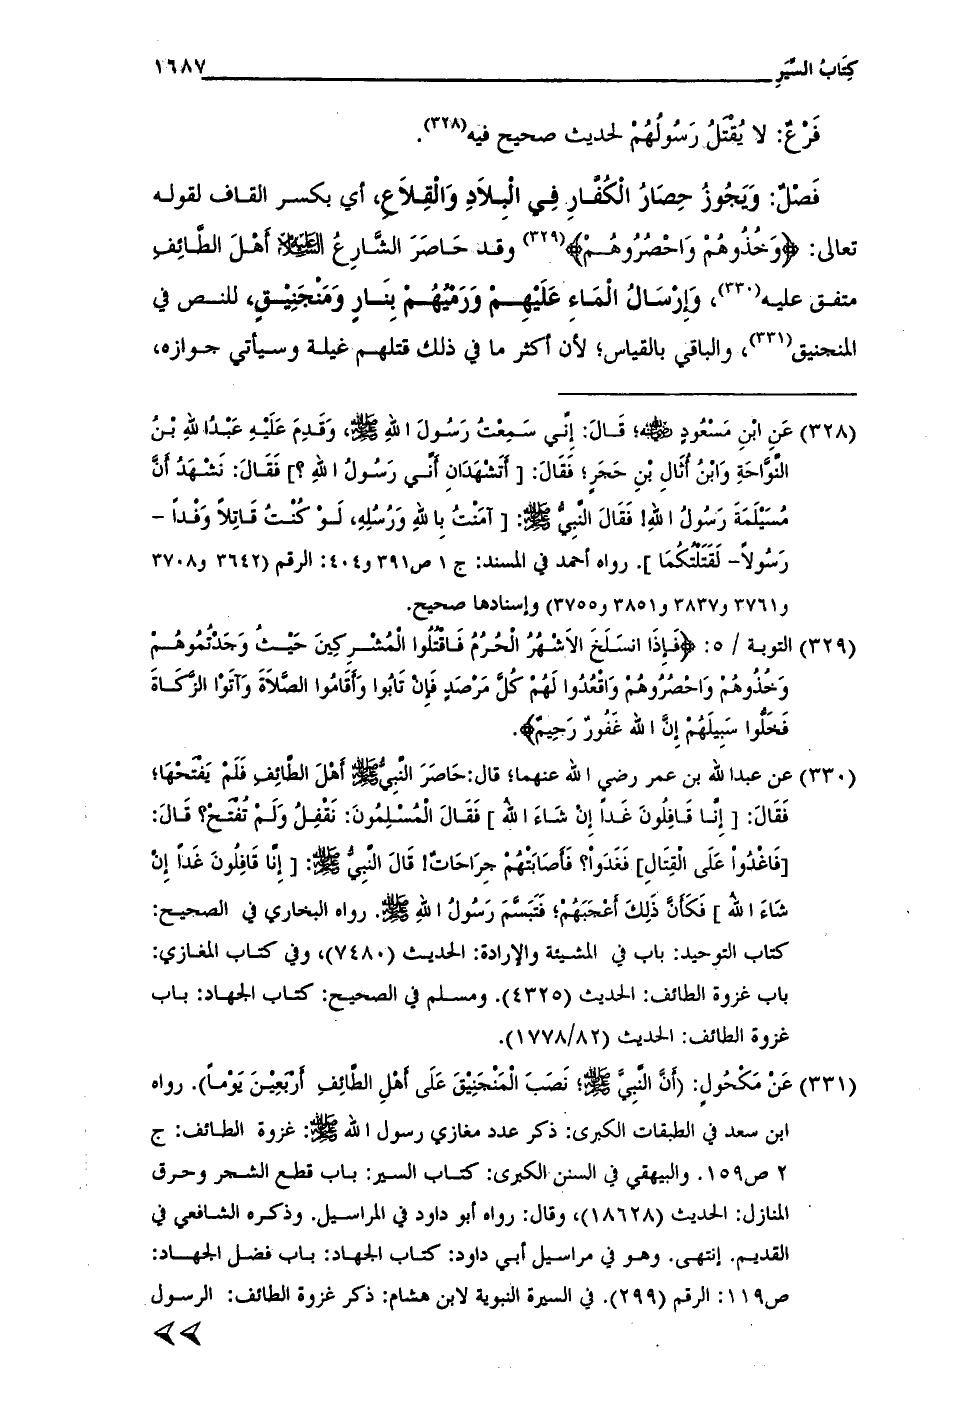 كِتَابُ السِّيَرِ ١٦٨٧
فَرْعٌ: لا يُقْتَلُ رَسُولُهُمْ لحديث صحيح فيه(٣٢٨).
فَصْلٌ: وَيَجُوزُ حِصَارُ الْكُفَّارِ فِي الْبِلَادِ وَالْقِلاَعِ، أي بكسر القاف لقوله
تعالى: ﴿وَخُذُوهُمْ وَاحْصُرُوهُمْ﴾(٣٢٩) وقد حَاصَرَ الشَّارِعُ ﷺ أَهْلَ الطَّائِفِ
متفق عليه(٣٣٠)، وَإِرْسَالُ الْمَاءِ عَلَيْهِمْ وَرَمْيُهُمْ بِنَارٍ وَمَنْجَنِيْقٍ، للنص في
المنجنيق(٣٣١)، والباقي بالقياس؛ لأن أكثر ما في ذلك قتلهم غيلة وسيأتي جوازه،
(٣٢٨) عَنِ ابْنِ مَسْعُودٍ ﵁؛ قَالَ: إِنِّي سَمِعْتُ رَسُولَ اللهِ ﷺ، وَقَدِمَ عَلَيْهِ عَبْدُاللهِ بْنُ
النَّوَّاحَةِ وَابْنُ أُثَالِ بْنِ حَجَرٍ؛ فَقَالَ: [ أَتَشْهَدَانِ أَنِّي رَسُولُ اللهِ ؟] فَقَالَ: نَشْهَدُ أَنَّ
مُسَيْلَمَةَ رَسُولُ اللهِ! فَقَالَ النَّبِيُّ ﷺ: [ آمَنْتُ بِاللهِ وَرُسُلِهِ، لَوْ كُنْتُ قَاتِلاً وَفْداً -
رَسُولاً- لَقَتَلْتُكُمَا ]. رواه أحمد في المسند: ج ١ ص٣٩١ و٤٠٤: الرقم (٣٦٤٢ و٣٧٠٨
و٣٧٦١ و٣٨٣٧ و٣٨٥١ و٣٧٥٥) وإسنادها صحيح.
(٣٢٩) التوبة / ٥: ﴿فَإِذَا انسَلَخَ الأَشْهُرُ الْحُرُمُ فَاقْتُلُوا الْمُشْرِكِينَ حَيْثُ وَجَدْتُمُوهُمْ
وَخُذُوهُمْ وَاحْصُرُوهُمْ وَاقْعُدُوا لَهُمْ كُلَّ مَرْصَدٍ فَإِنْ تَابُوا وَأَقَامُوا الصَّلاَةَ وَآتَوْا الزَّكَاةَ
فَخَلُّوا سَبِيلَهُمْ إِنَّ اللهَ غَفُورٌ رَحِيمٌ﴾.
(٣٣٠) عن عبدالله بن عمر رضي الله عنهما؛ قال:حَاصَرَ النَّبِيُّ ﷺ أَهْلَ الطَّائِفِ فَلَمْ يَفْتَحْهَا؛
فَقَالَ: [ إِنَّا قَافِلُونَ غَداً إِنْ شَاءَ اللهُ ] فَقَالَ الْمُسْلِمُونَ: نَقْفِلُ وَلَمْ تُفْتَحْ؟ قَالَ:
[فَاغْدُواْ عَلَى الْقِتَالِ] فَغَدَوْا؟ فَأَصَابَتْهُمْ جِرَاحَاتٌ! قَالَ النَّبِيُّ ﷺ: [ إِنَّا قَافِلُونَ غَداً إِنْ
شَاءَ اللهُ ] فَكَأَنَّ ذَلِكَ أَعْجَبَهُمْ؛ فَتَبَسَّمَ رَسُولُ اللهِ ﷺ. رواه البخاري في الصحيح:
كتاب التوحيد: باب في المشيئة والإرادة: الحديث (٧٤٨٠)، وفي كتاب المغازي:
باب غزوة الطائف: الحديث (٤٣٢٥). ومسلم في الصحيح: كتاب الجهاد: باب
غزوة الطائف: الحديث (١٧٧٨/٨٢).
(٣٣١) عَنْ مَكْحُولٍ: (أَنَّ النَّبِيَّ ﷺ؛ نَصَبَ الْمَنْجَنِيْقَ عَلَى أَهْلِ الطَّائِفِ أَرْبَعِيْنَ يَوْماً). رواه
ابن سعد في الطبقات الكبرى: ذكر عدد مغازي رسول الله ﷺ: غزوة الطائف: ج
٢ ص١٥٩. والبيهقي في السنن الكبرى: كتاب السير: باب قطع الشجر وحرق
المنازل: الحديث (١٨٦٢٨)، وقال: رواه أبو داود في المراسيل. وذكره الشافعي في
القديم. إنتهى. وهو في مراسيل أبي داود: كتاب الجهاد: باب فضل الجهاد:
ص١١٩: الرقم (٢٩٩). في السيرة النبوية لابن هشام: ذكر غزوة الطائف: الرسول